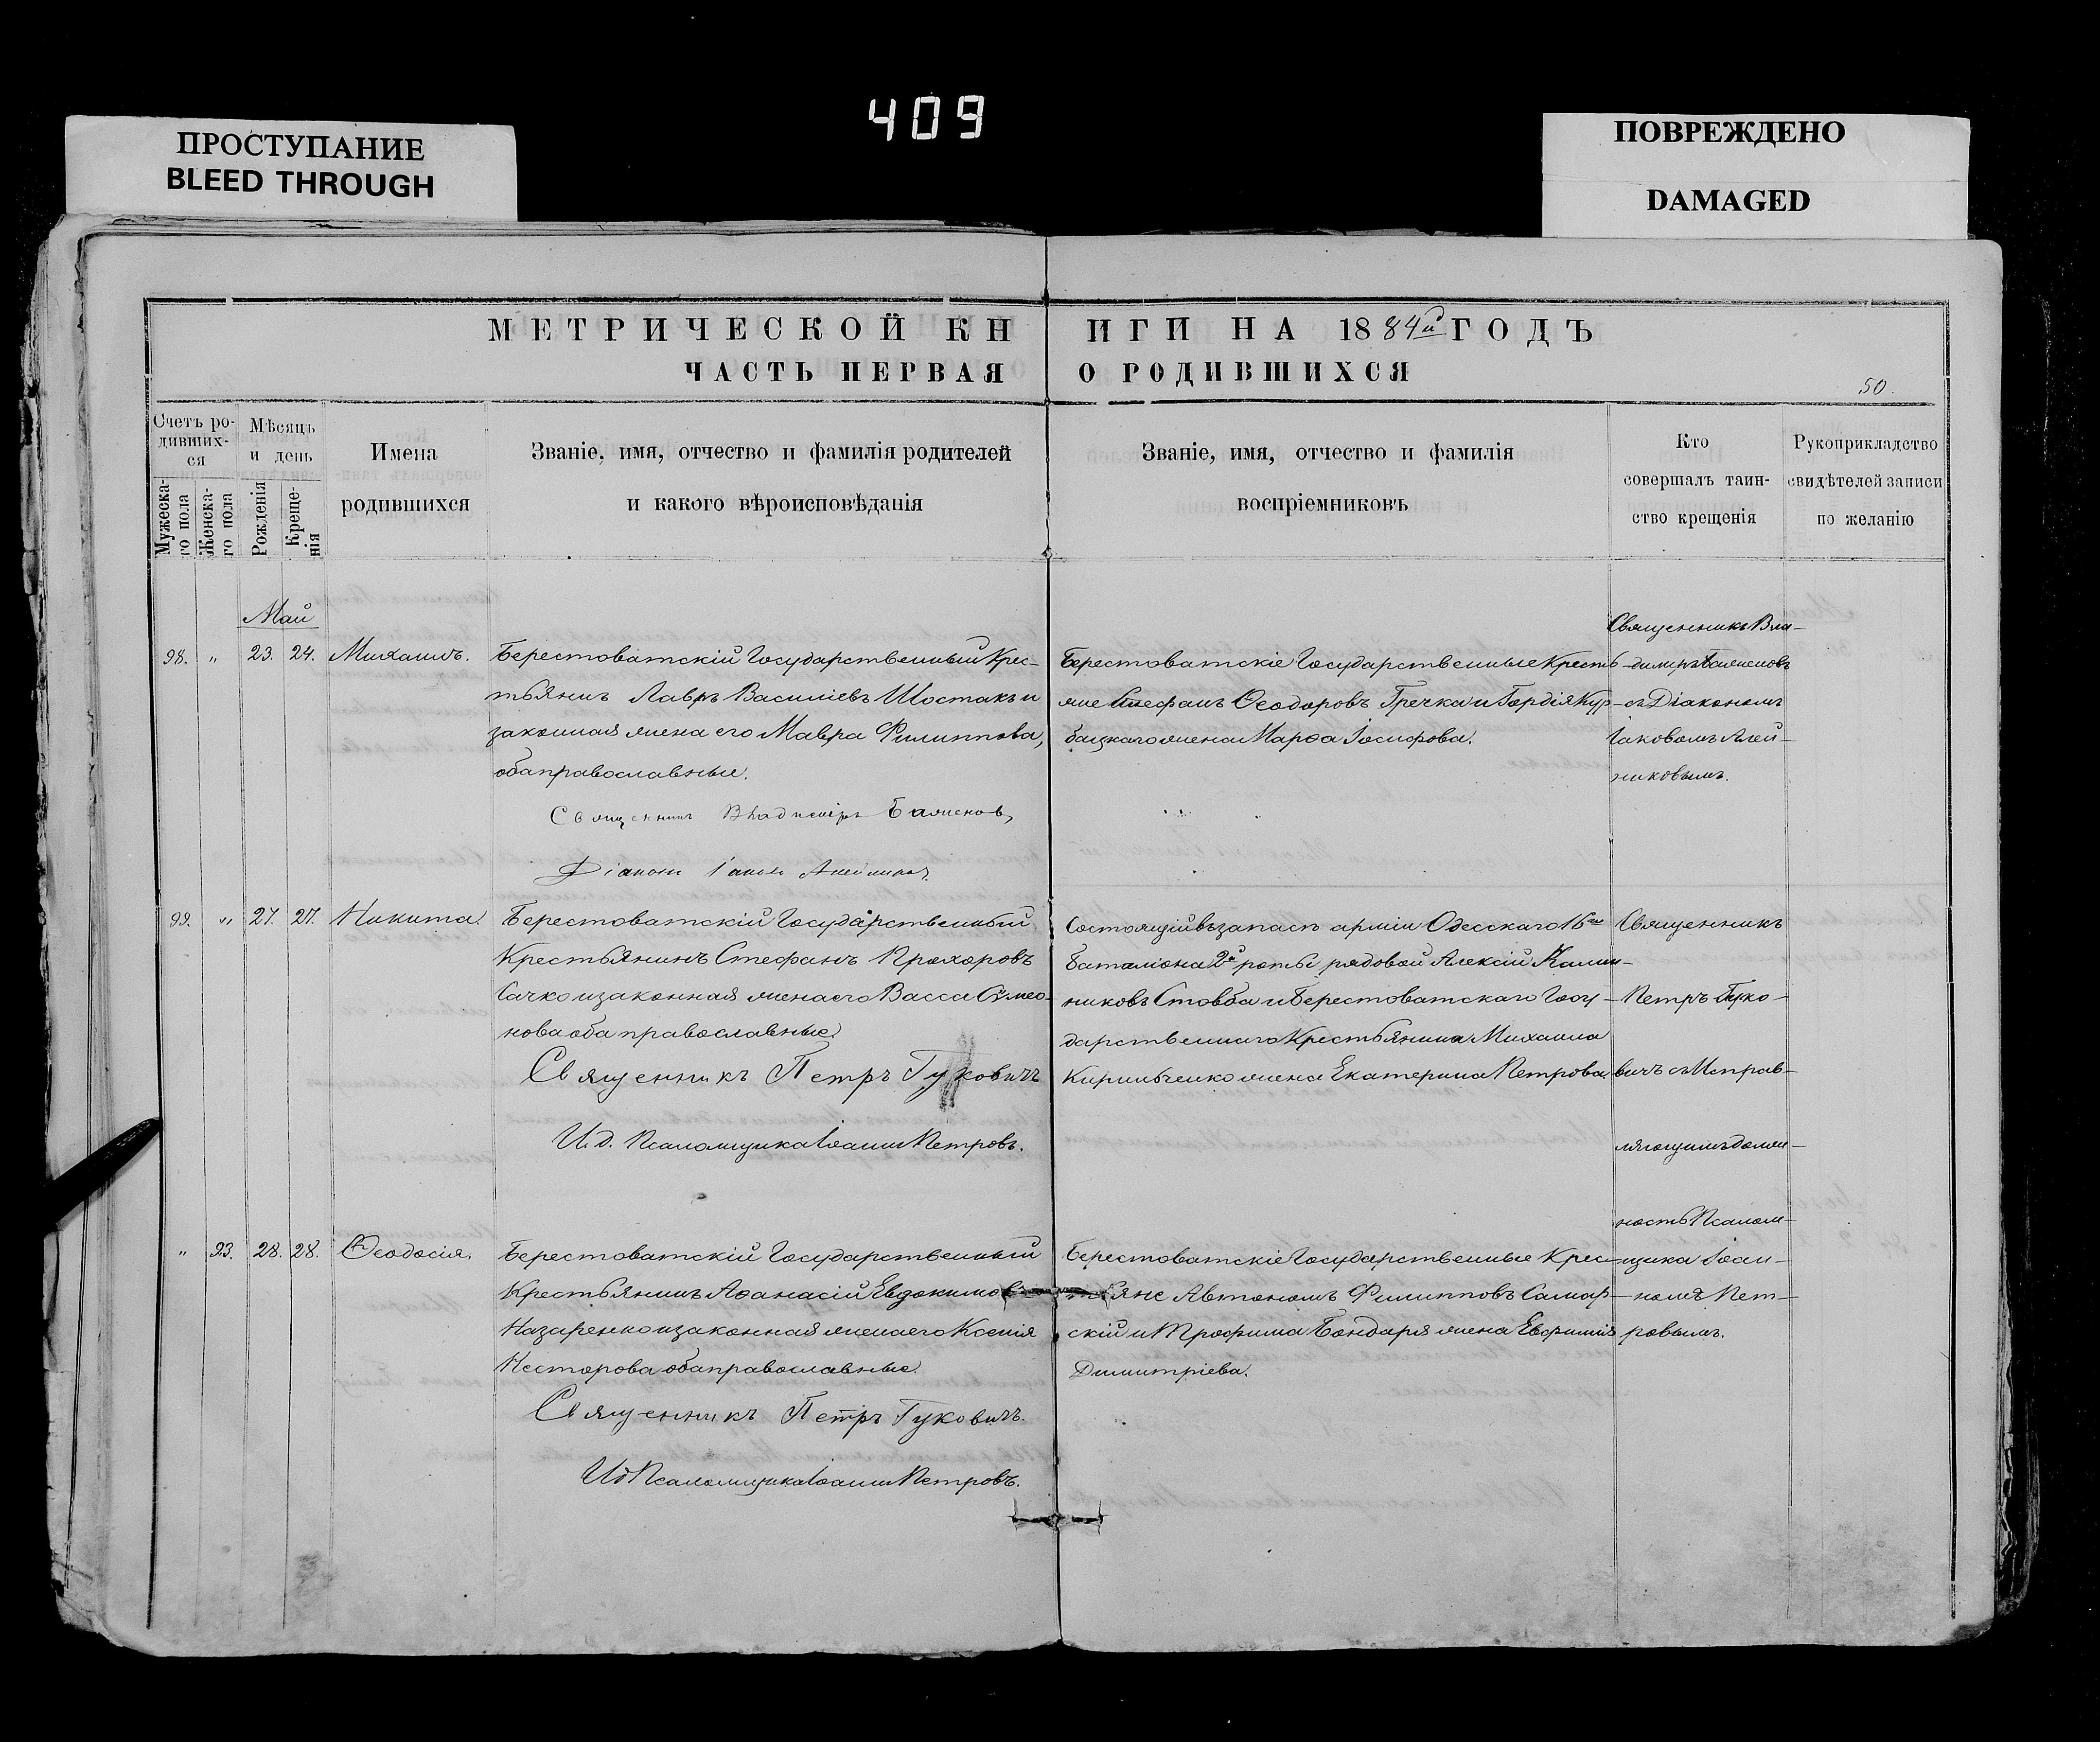 409
ПРОСТУПАНИЕ
BLEED THROUGH
ПОВРЕЖДЕНО
DAMAGED
МЕТРИЧЕСКОЙ КНИГИ НА 1884й ГОДЪ
ЧАСТЬ ПЕРВАЯ О РОДИВШИХСЯ
50.
Счетъ ро-
дивших-
ся
Мужеска-
го пола
Женска-
го пола
Мѣсяцъ
и день
Рожденія
Креще-
нія
Имена
родившихся
Званіе, имя, отчество и фамилія родителей
и какого вѣроисповѣданія
Званіе, имя, отчество и фамилія
воспріемниковъ
Кто
совершалъ таин-
ство крещенія
Рукоприкладство
свидѣтелей записи
по желанію
Май
98. " 23. 24. Михаилъ.
Берестоватскій Государственный Крес-
тьянинъ Лавръ Василіевъ Шостакъ и
законная жена его Мавра Филиппова,
оба православные.
Священникъ Владиміръ Баженовъ,
Діаконъ Іаковъ Алейниковъ
Берестоватскіе Государственные Кресть-
яне Стефанъ Ѳеодоровъ Гречка и Гордія Кур-
бацкаго жена Марѳа Іосифова.
Священникъ Вла-
димиръ Баженовъ
съ Діакономъ
Іаковомъ Алей-
никовымъ.
99. " 27. 27. Никита.
Берестоватскій Государственный
Крестьянинъ Стефанъ Прохоровъ
Сачко и законная жена его Васса Сѵмео-
нова оба православные.
Священникъ Петръ Гуковичъ
И. д. Псаломщика Іоаннъ Петровъ.
Состоящій въ запасѣ арміи Одесскаго 16го
баталіона 2й роты рядовой Алексій Калин-
никовъ Стовба и Берестоватскаго Госу-
дарственнаго Крестьянина Михаила
Кирильченко жена Екатерина Петрова.
Священникъ
Петръ Гуко-
вичъ съ Исправ-
ляющимъ долж-
ность Псалом-
щика Іоан-
номъ Пет-
ровымъ.
" 93. 28. 28. Ѳеодосія.
Берестоватскій Государственный
Крестьянинъ Аѳанасій Евдокимовъ
Назаренко и законная жена его Ксенія
Несторова оба православные.
Священникъ Петръ Гуковичъ.
И д Псаломщика Іоаннъ Петровъ.
Берестоватскіе Государственные Крес-
тьяне Автономъ Филипповъ Самар-
скій и Трофима Бондаря жена Евфимія
Димитріева.